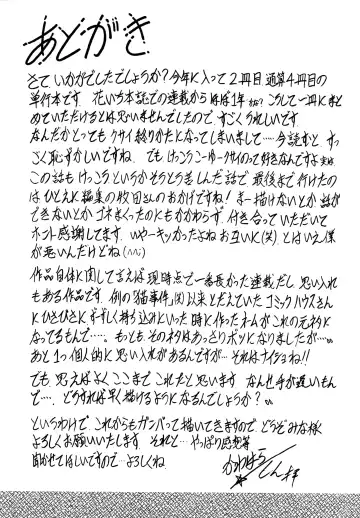 あとがき
さて、いかがでしたでしょうか？今年に入って2冊目、通算4冊目の
単行本です。花いち本誌での連載からほぼ1年、こうして一冊にまと
めていただけるとは思いませんでしたので、すごくうれしいです。
なんだかとってもクサイ終りかたになってしまいまして……今読むと、すっ
ごく恥ずかしいですね。でもけっこうこーゆークサイのって好きなんですよ実は
この話もけっこうというかそうとう苦しんだ話で最後まで行けたの
はひとえに編集の牧田さんのおかげですね！まー描けないとか話が
できないとかゴネまくったのにもかかわらず、付き合っていただいて
ホント感謝してます。いやーキツかったよねお互いに(笑)とはいえ僕
が悪いんだけどね(^^;)
作品自体に関して言えば現時点で一番長かった連載だし思い入れ
もある作品です。例の「猫事件」以来とだえていたコミックハウスさん
にひさびさにずーずーしく持ち込みにいった時に作ったネームがこれの元ネタに
なってるもんで……。もっともそのネタはあっさりボツになりましたが……。
あと1つ個人的に思い入れがあるんですが…それはナイショね!!
でも、思えばよくここまでこれたと思います。なんせ手が遅いもん
で……。どうすれば早く描けるようになるんでしょうか？
というわけで、これからもガンバって描いてきますので、どうぞみな様
よろしくお願いいたします。それと…やっぱり感想等
聞かせてほしいですので…よろしくね